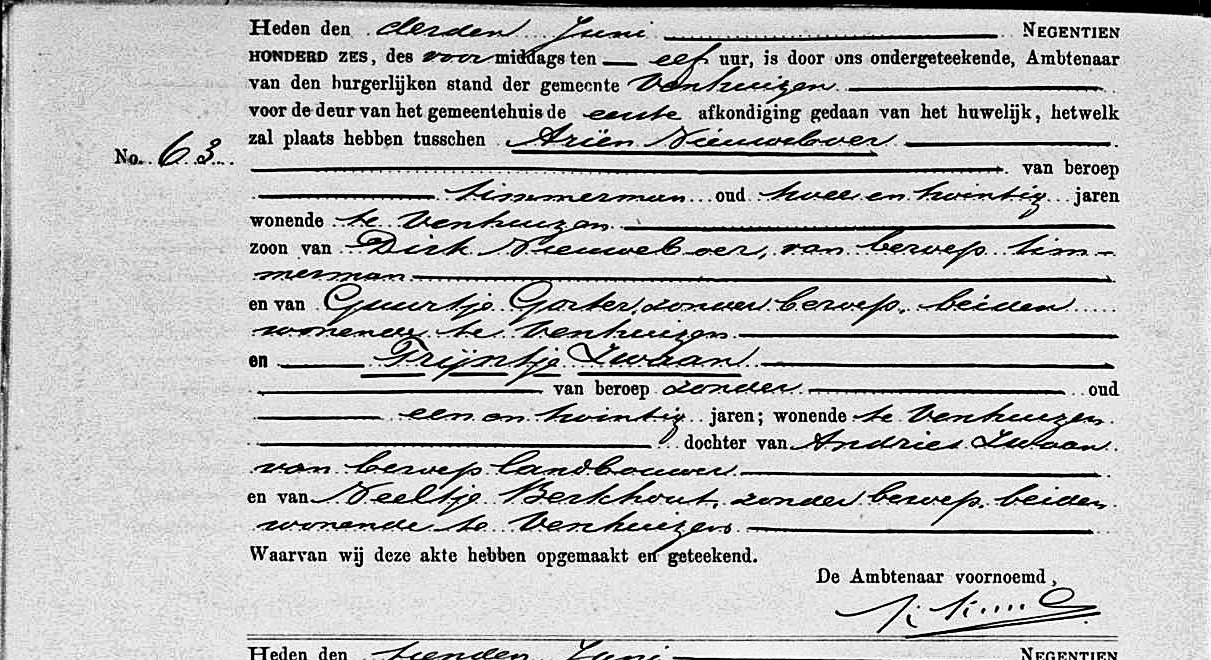 Heden den derden Juni NEGENTIEN
HONDERD ZES, des voormiddags ten elf uur, is door ons ondergeteekende, Ambtenaar
van den burgerlijken stand der gemeente Venhuizen
voor de deur van het gemeentehuis de eerste afkondiging gedaan van het huwelijk, hetwelk
zal plaats hebben tusschen Ariën Nieuweboer
No. 63
van beroep
timmerman oud twee en twintig jaren
wonende te Venhuizen
zoon van Dirk Nieuweboer, van beroep tim-
merman
en van Guurtje Gorter, zonder beroep, beiden
wonende te Venhuizen
en Trijntje Zwaan
van beroep zonder oud
een en twintig jaren; wonende te Venhuizen
dochter van Andries Zwaan
van beroep landbouwer
en van Neeltje Berkhout, zonder beroep, beiden
wonende te Venhuizen
Waarvan wij deze akte hebben opgemaakt en geteekend.
De Ambtenaar voornoemd,
Heden den tienden Juni NEGENTIEN